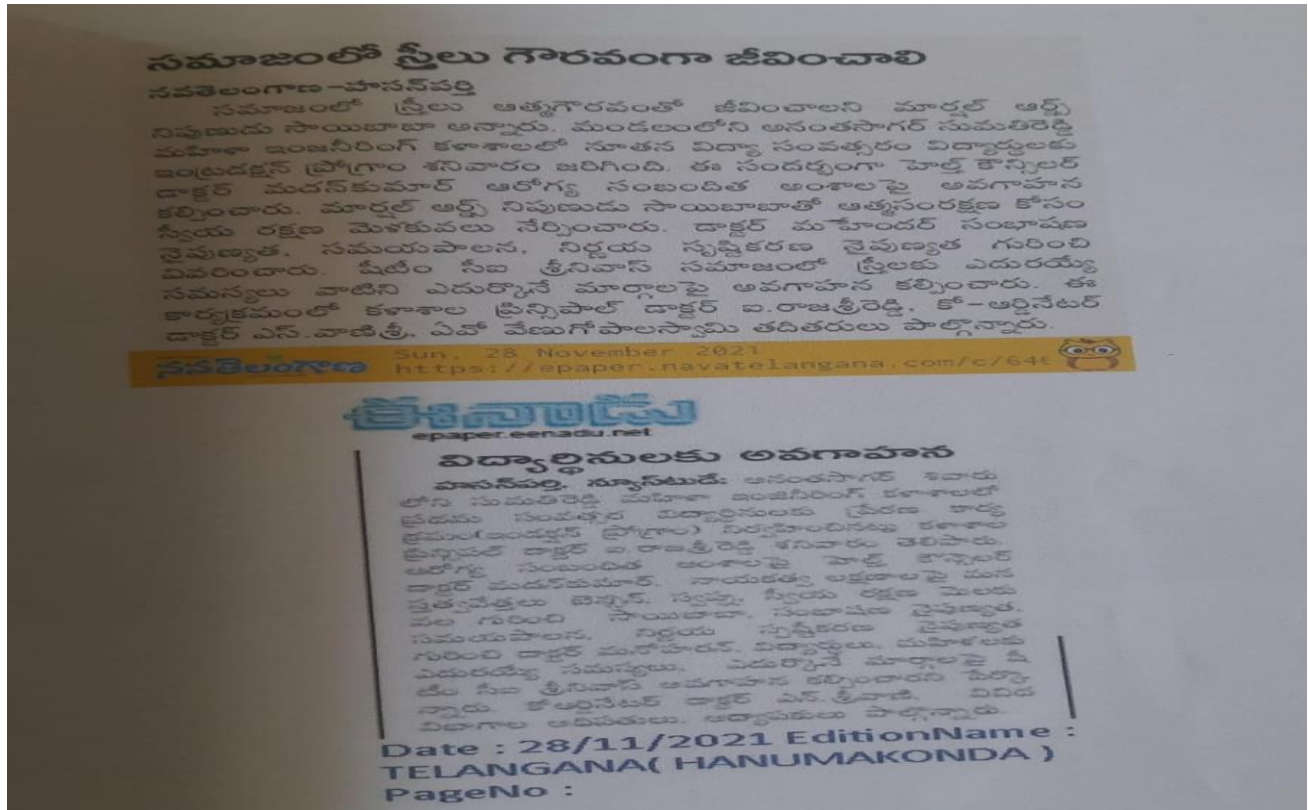 సమాజంలో స్త్రీలు గౌరవంగా జీవించాలి
నవతెలంగాణ-హసన్‌పర్తి
సమాజంలో స్త్రీలు ఆత్మగౌరవంతో జీవించాలని మార్షల్ ఆర్ట్స్
నిపుణుడు సాయిబాబా అన్నారు. మండలంలోని అనంతసాగర్ సుమతిరెడ్డి
మహిళా ఇంజనీరింగ్ కళాశాలలో నూతన విద్యా సంవత్సరం విద్యార్థులకు
ఇంట్రడక్షన్ ప్రోగ్రాం శనివారం జరిగింది. ఈ సందర్భంగా హెల్త్ కౌన్సిలర్
డాక్టర్ మదన్‌కుమార్ ఆరోగ్య సంబందిత అంశాలపై అవగాహన
కల్పించారు. మార్షల్ ఆర్ట్స్ నిపుణుడు సాయిబాబాతో ఆత్మసంరక్షణ కోసం
స్వీయ రక్షణ మెళకువలు నేర్పించారు. డాక్టర్ మహేందర్ సంభాషణ
నైపుణ్యత, సమయపాలన, నిర్ణయ సృష్టికరణ నైపుణ్యత గురించి
వివరించారు. షీటీం సీఐ శ్రీనివాస్ సమాజంలో స్త్రీలకు ఎదురయ్యే
సమస్యలు వాటిని ఎదుర్కొనే మార్గాలపై అవగాహన కల్పించారు. ఈ
కార్యక్రమంలో కళాశాల ప్రిన్సిపాల్ డాక్టర్ ఐ.రాజశ్రీరెడ్డి, కో-ఆర్డినేటర్
డాక్టర్ ఎస్.వాణిశ్రీ, ఏవో వేణుగోపాలస్వామి తదితరులు పాల్గొన్నారు.
నవతెలంగాణ Sun, 28 November 2021
https://epaper.navatelangana.com/c/646
ఈనాడు
epaper.eenadu.net
విద్యార్థినులకు అవగాహన
హసన్‌పర్తి, న్యూస్‌టుడే: అనంతసాగర్ శివారు
లోని సుమతిరెడ్డి మహిళా ఇంజినీరింగ్ కళాశాలలో
ప్రథమ సంవత్సర విద్యార్థినులకు ప్రేరణ కార్య
క్రమం(ఇండక్షన్ ప్రోగ్రాం) నిర్వహించినట్లు కళాశాల
ప్రిన్సిపల్ డాక్టర్ ఐ.రాజశ్రీరెడ్డి శనివారం తెలిపారు.
ఆరోగ్య సంబంధిత అంశాలపై హెల్త్ కౌన్సెలర్
డాక్టర్ మదన్‌కుమార్, నాయకత్వ లక్షణాలపై మన
స్తత్వవేత్తలు స్వప్న, స్వీయ రక్షణ మెలకు
వల గురించి సాయిబాబా, సంభాషణ నైపుణ్యత,
సమయపాలన, నిర్ణయ సృష్టీకరణ నైపుణ్యత
గురించి డాక్టర్ మనోహర్, విద్యార్థులు, మహిళలకు
ఎదురయ్యే సమస్యలు, ఎదుర్కొనే మార్గాలపై షీ
టీం సీఐ శ్రీనివాస్ అవగాహన కల్పించారని పేర్కొ
న్నారు. కోఆర్డినేటర్ డాక్టర్ ఎన్.శ్రీవాణి, వివిధ
విభాగాల అధిపతులు, అధ్యాపకులు పాల్గొన్నారు.
Date : 28/11/2021 EditionName :
TELANGANA( HANUMAKONDA )
PageNo :